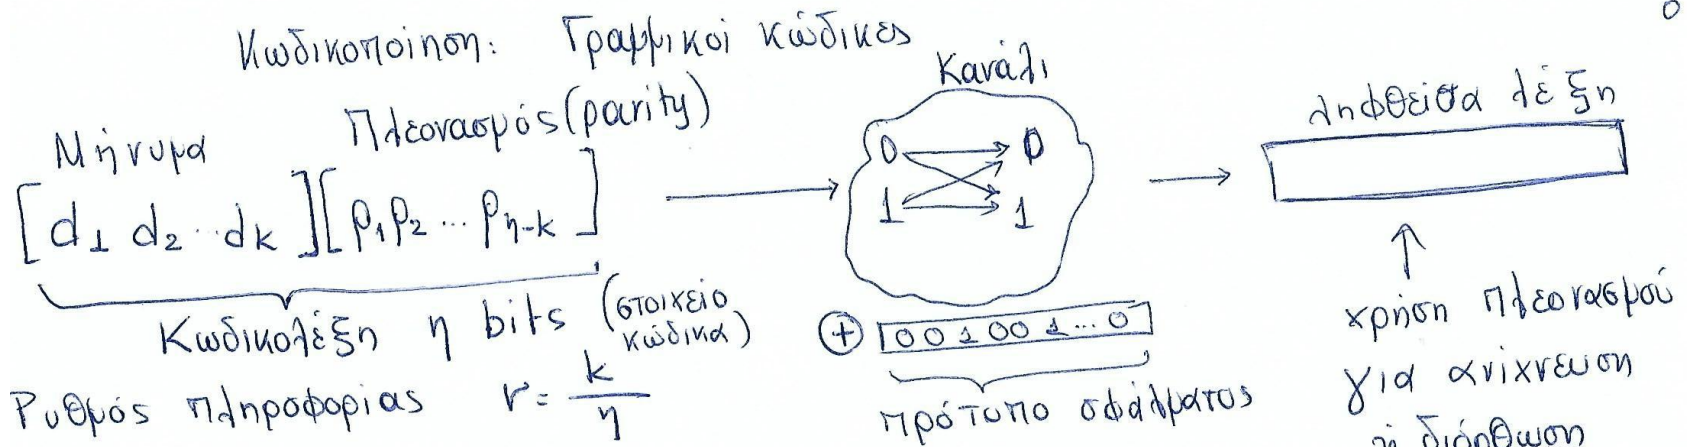 Κωδικοποίηση: Γραμμικοί κώδικες
Μήνυμα
Πλεονασμός (parity)
[d1 d2 .. dk] [p1 p2 ... pη-k]
Κωδικολέξη η bits (στοιχείο κώδικα)
Ρυθμός πληροφορίας r = k/η
Κανάλι
0 0
1 1
⊕ 0 0 1 0 0 1 ... 0
πρότυπο σφάλματος
ληφθείσα λέξη
χρήση πλεονασμού
για ανίχνευση
ή διόρθωση